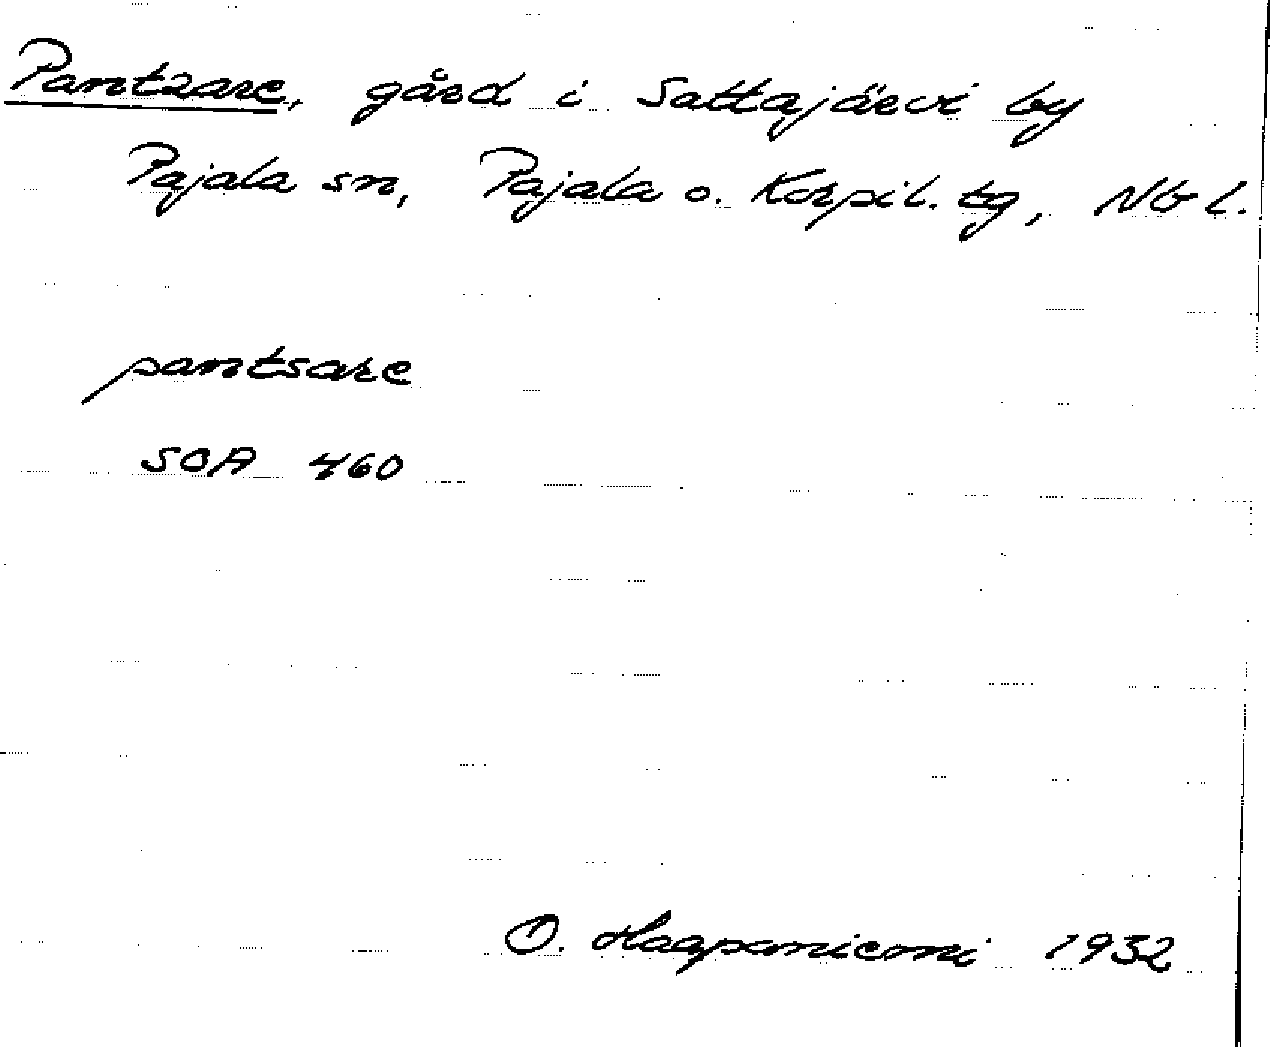 Pantzare, gård i Sattajärvi by
Pajala sn, Pajala o. Korpil. tg, Nb l.
pantsare
SOA 460
O. Haapaniemi 1932